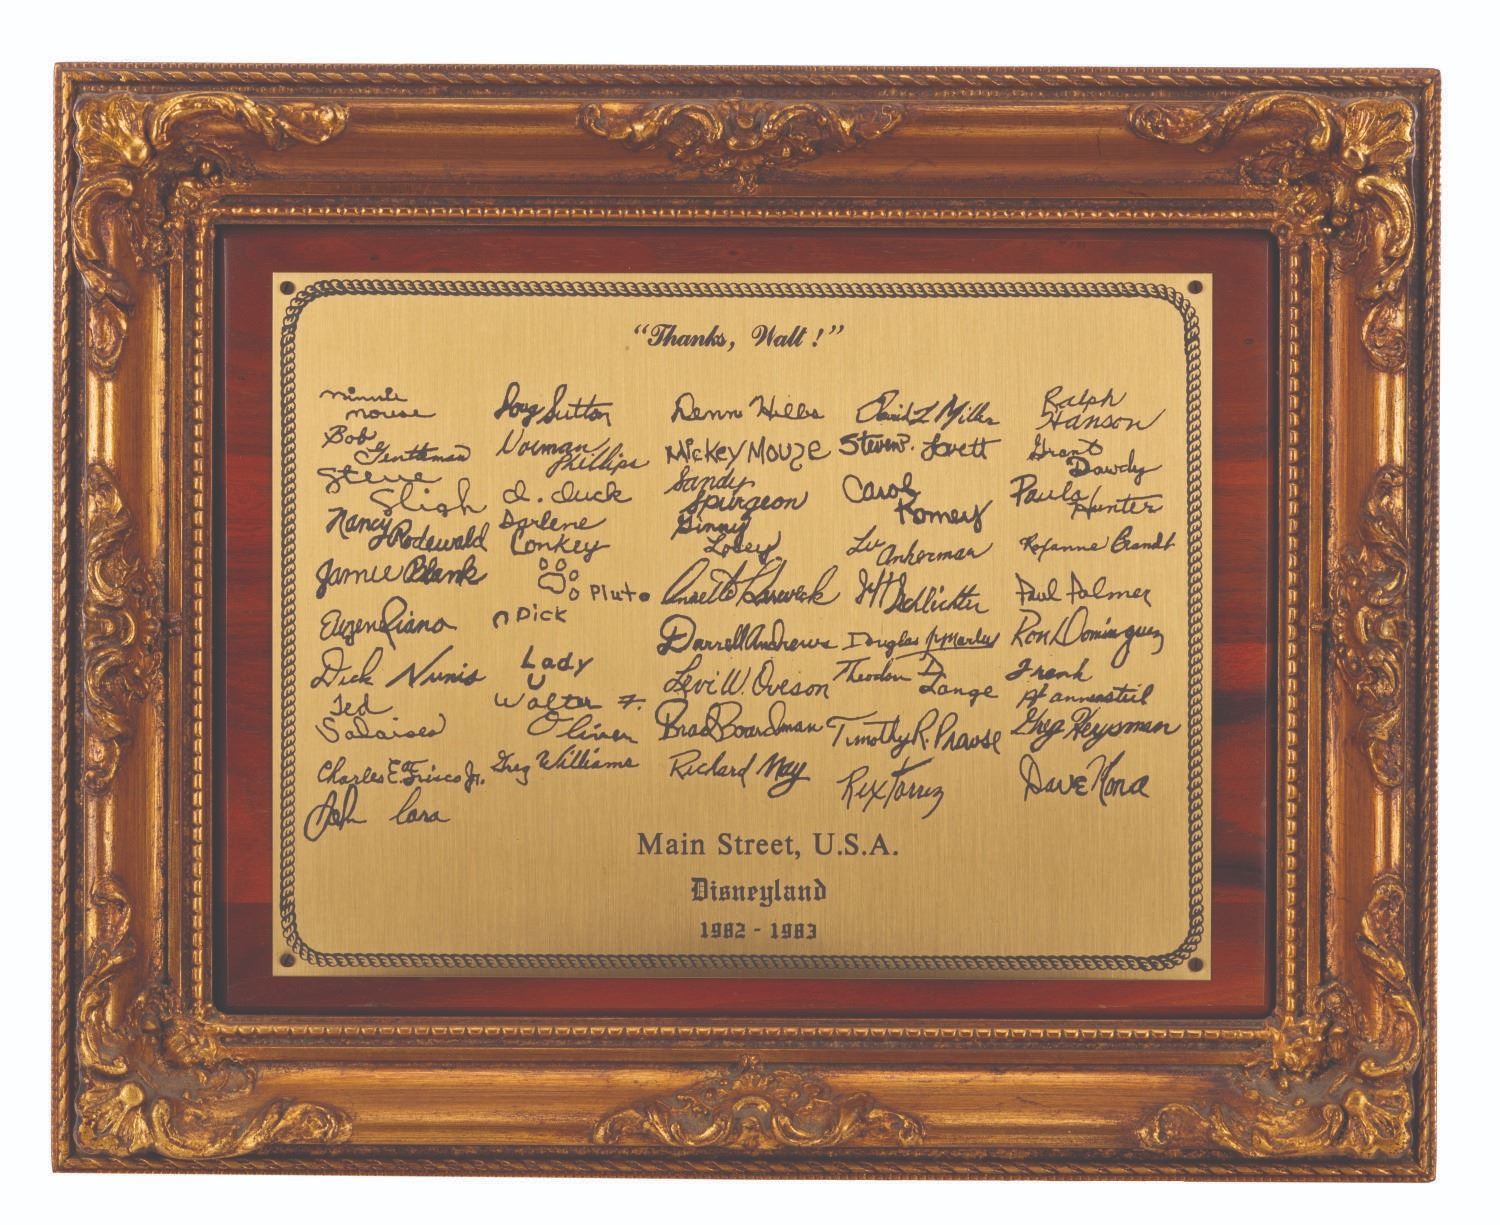 "Thanks, Walt!"
minnie
mouse
Bob
Gentleman
Steve
Sligh
Nancy
Rodewald
Jamie Blank
Eugene Riano
Dick Nunis
Ted
Salaises
Charles E. Frisco Jr.
John Cara
Doug Sutton
Norman
Phillips
d. duck
Darlene
Conkey
Pluto
Dick
Lady
Walter F.
Oliver
Greg Williams
Denni Hills
Mickey Mouse
Sandy
Spurgeon
Ginny
Losey
Annette
Darrell Andrews
Levi W. Oveson
Brad Boardman
Richard May
David L Miller
Steven P. Lovett
Carol
Romey
Lu
Ankerman
Jeff Schlichter
Douglas
Theodore D.
Lange
Timothy R. Prause
Rex Torrez
Ralph
Hanson
Grant
Dowdy
Paula
Hunter
Roxanne Brandt
Paul Palmer
Ron Dominguez
Frank
Greg Heysman
Dave Nona
Main Street, U.S.A.
Disneyland
1982 - 1983